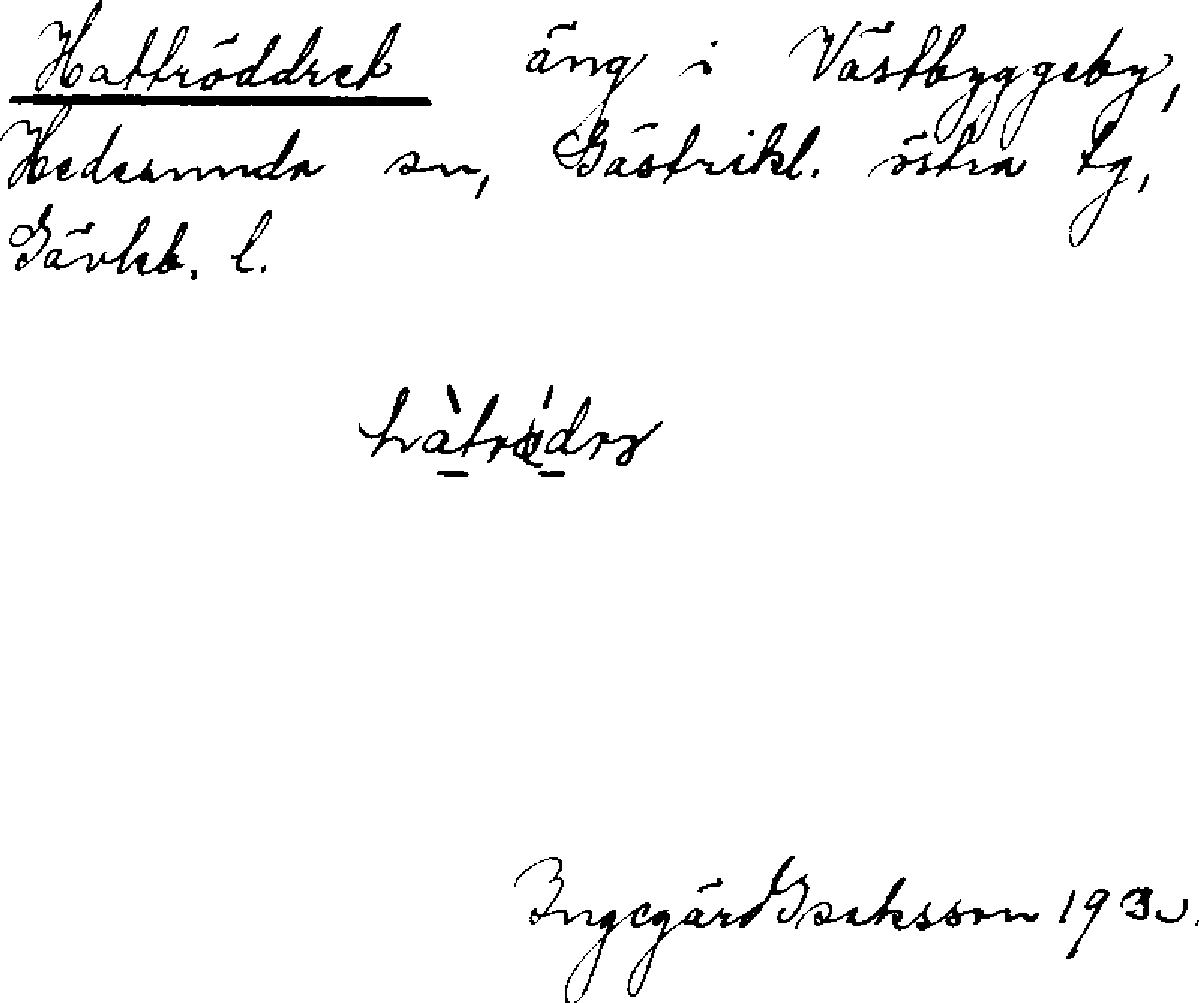 Hattröddret äng i Västbyggeby,
Hedesunda sn, Gästrikl. östra tg,
Gävleb. l.
Ingegärd Isaksson 193